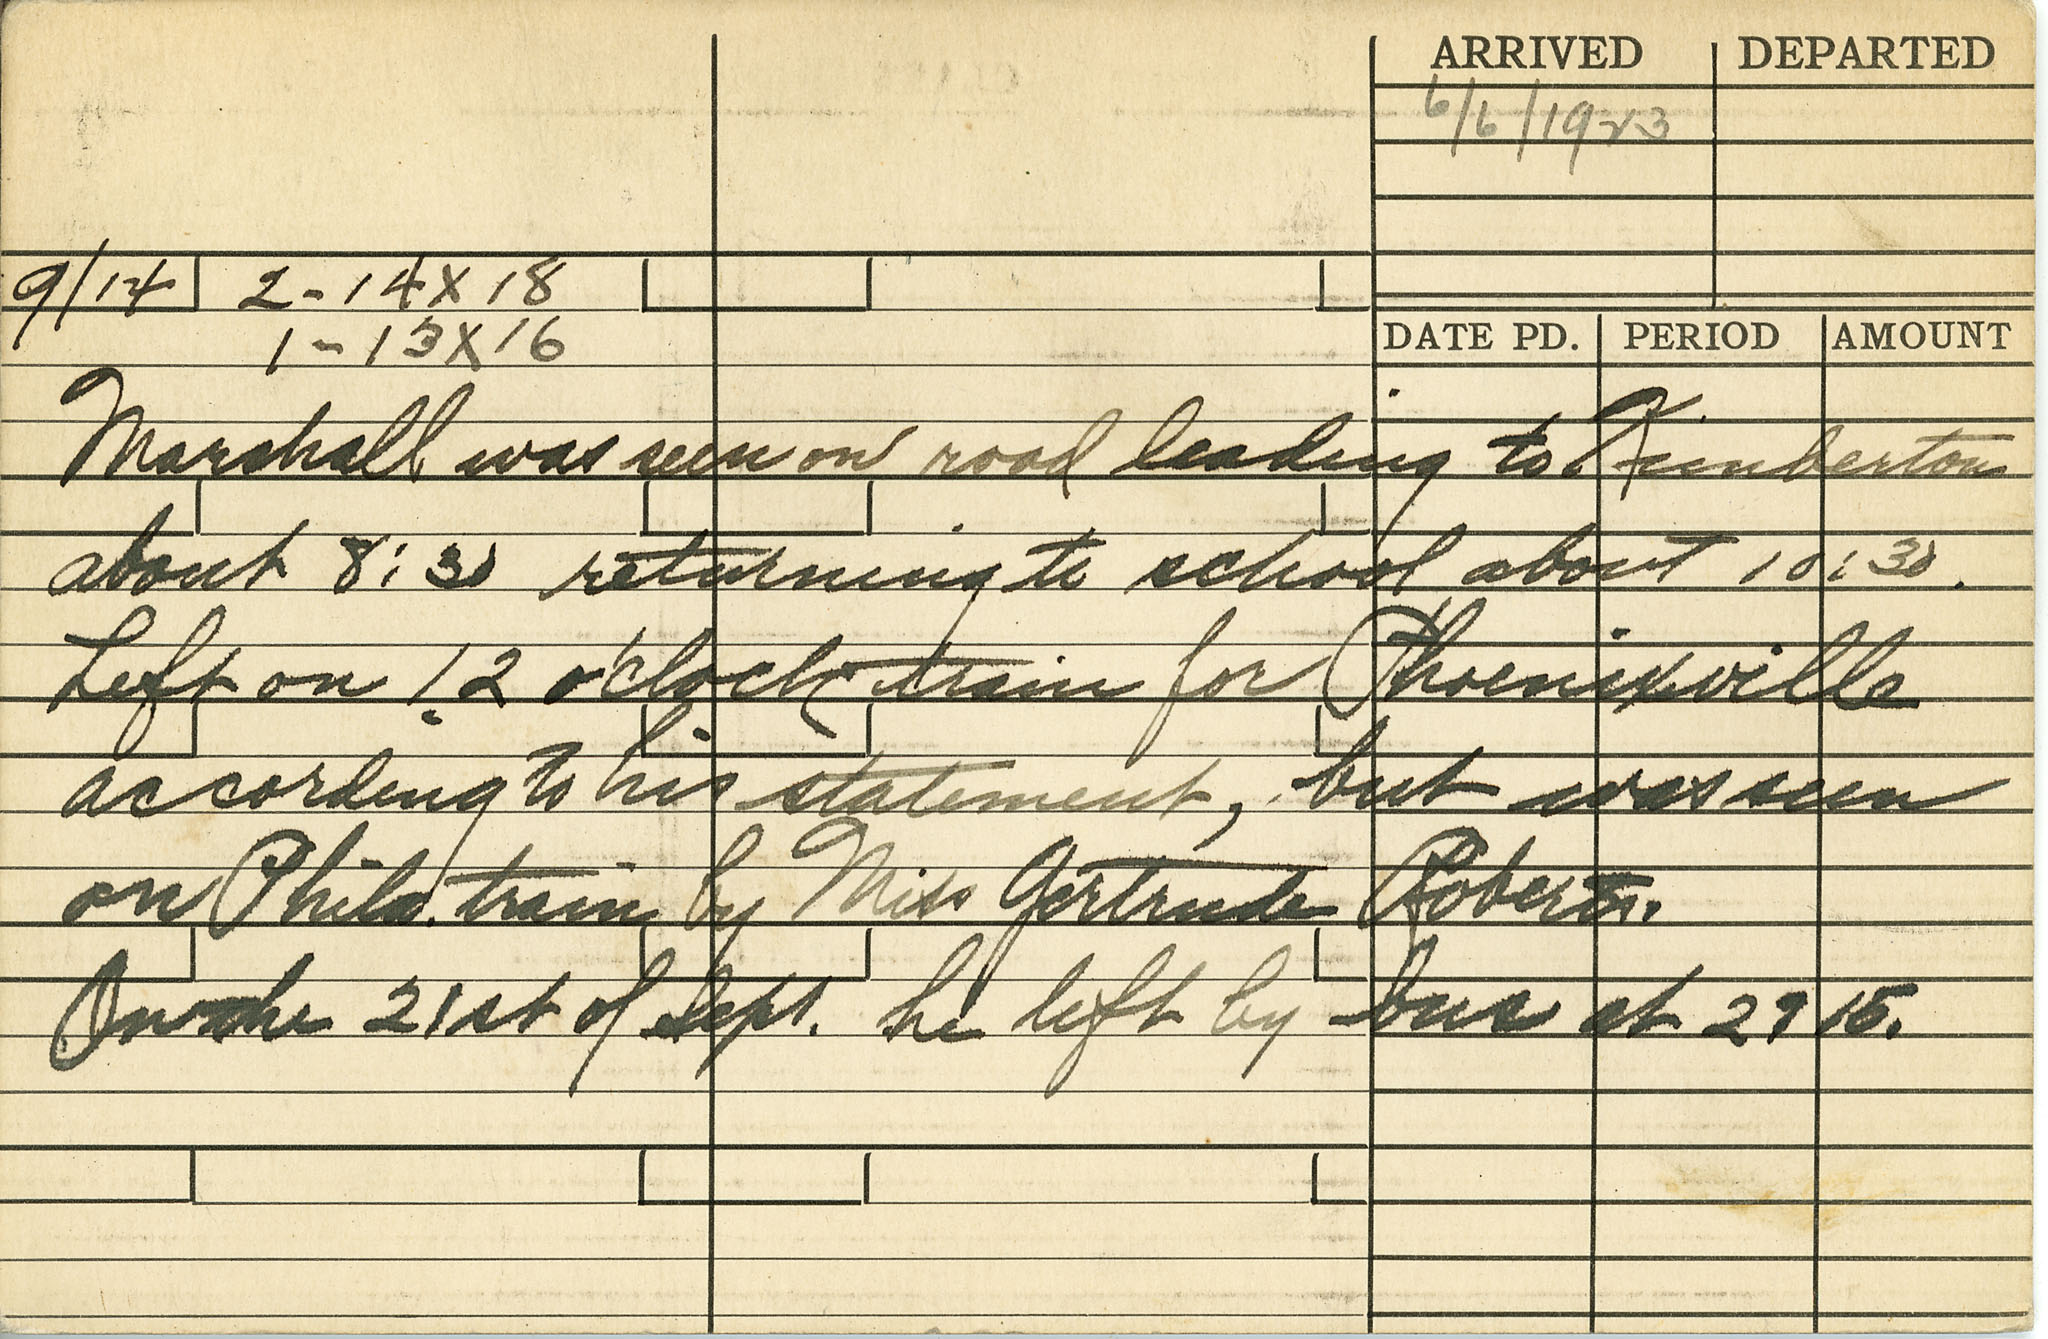 ARRIVED DEPARTED
6/6/1923
9/14 2-14X18
1-13X16
DATE PD. PERIOD AMOUNT
Marshall was seen on road leading to Kimberton
about 8:30 returning to school about 10:30.
Left on 12 o'clock train for Phoenixville
according to his statement, but was seen
on Phila. train by Miss Gertrude Roberts.
On the 21st of Sept. he left by bus at 2:15.